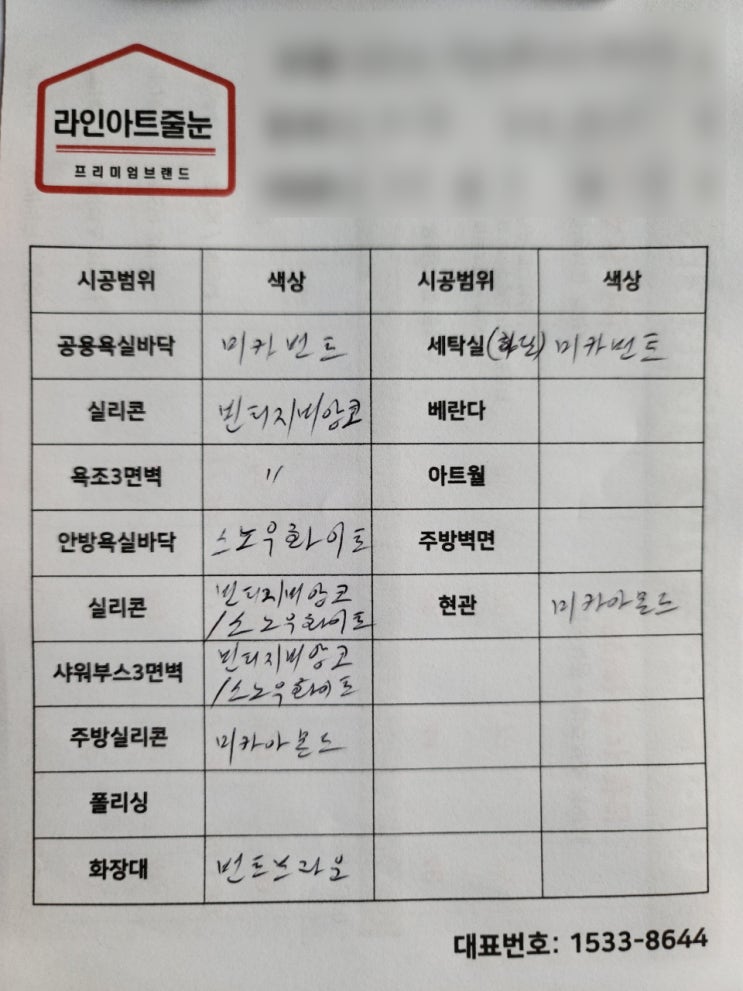 라인아트줄눈
프리미엄브랜드
시공범위 색상 시공범위 색상
공용욕실바닥 미카번트 세탁실 미카번트
실리콘 빈티지비앙코 베란다
욕조3면벽 〃 아트월
안방욕실바닥 스노우화이트 주방벽면
실리콘 빈티지비앙코 현관 미카아몬드
/스노우화이트
샤워부스3면벽 빈티지비앙코
/스노우화이트
주방실리콘 미카아몬드
폴리싱
화장대 번트브라운
대표번호: 1533-8644